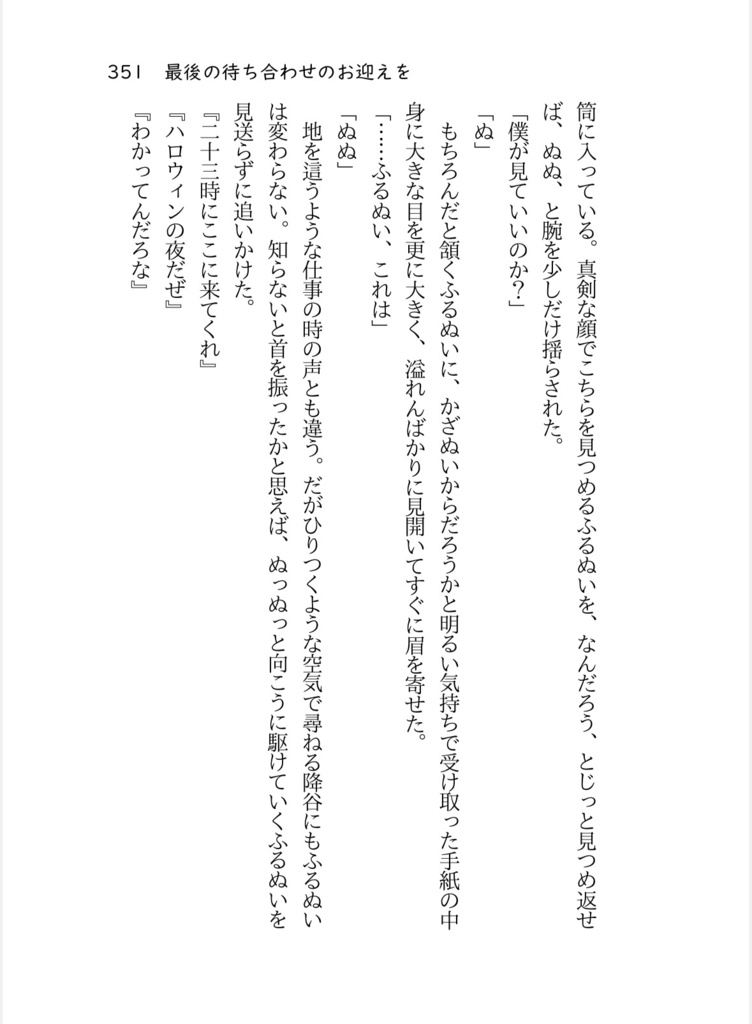 351 最後の待ち合わせのお迎えを
筒に入っている。真剣な顔でこちらを見つめるふるぬいを、なんだろう、とじっと見つめ返せ
ば、ぬぬ、と腕を少しだけ揺らされた。
「僕が見ていいのか？」
「ぬ」
もちろんだと頷くふるぬいに、かざぬいからだろうかと明るい気持ちで受け取った手紙の中
身に大きな目を更に大きく、溢れんばかりに見開いてすぐに眉を寄せた。
「……ふるぬい、これは」
「ぬぬ」
地を這うような仕事の時の声とも違う。だがひりつくような空気で尋ねる降谷にもふるぬい
は変わらない。知らないと首を振ったかと思えば、ぬっぬっと向こうに駆けていくふるぬいを
見送らずに追いかけた。
『二十三時にここに来てくれ』
『ハロウィンの夜だぜ』
『わかってんだろな』